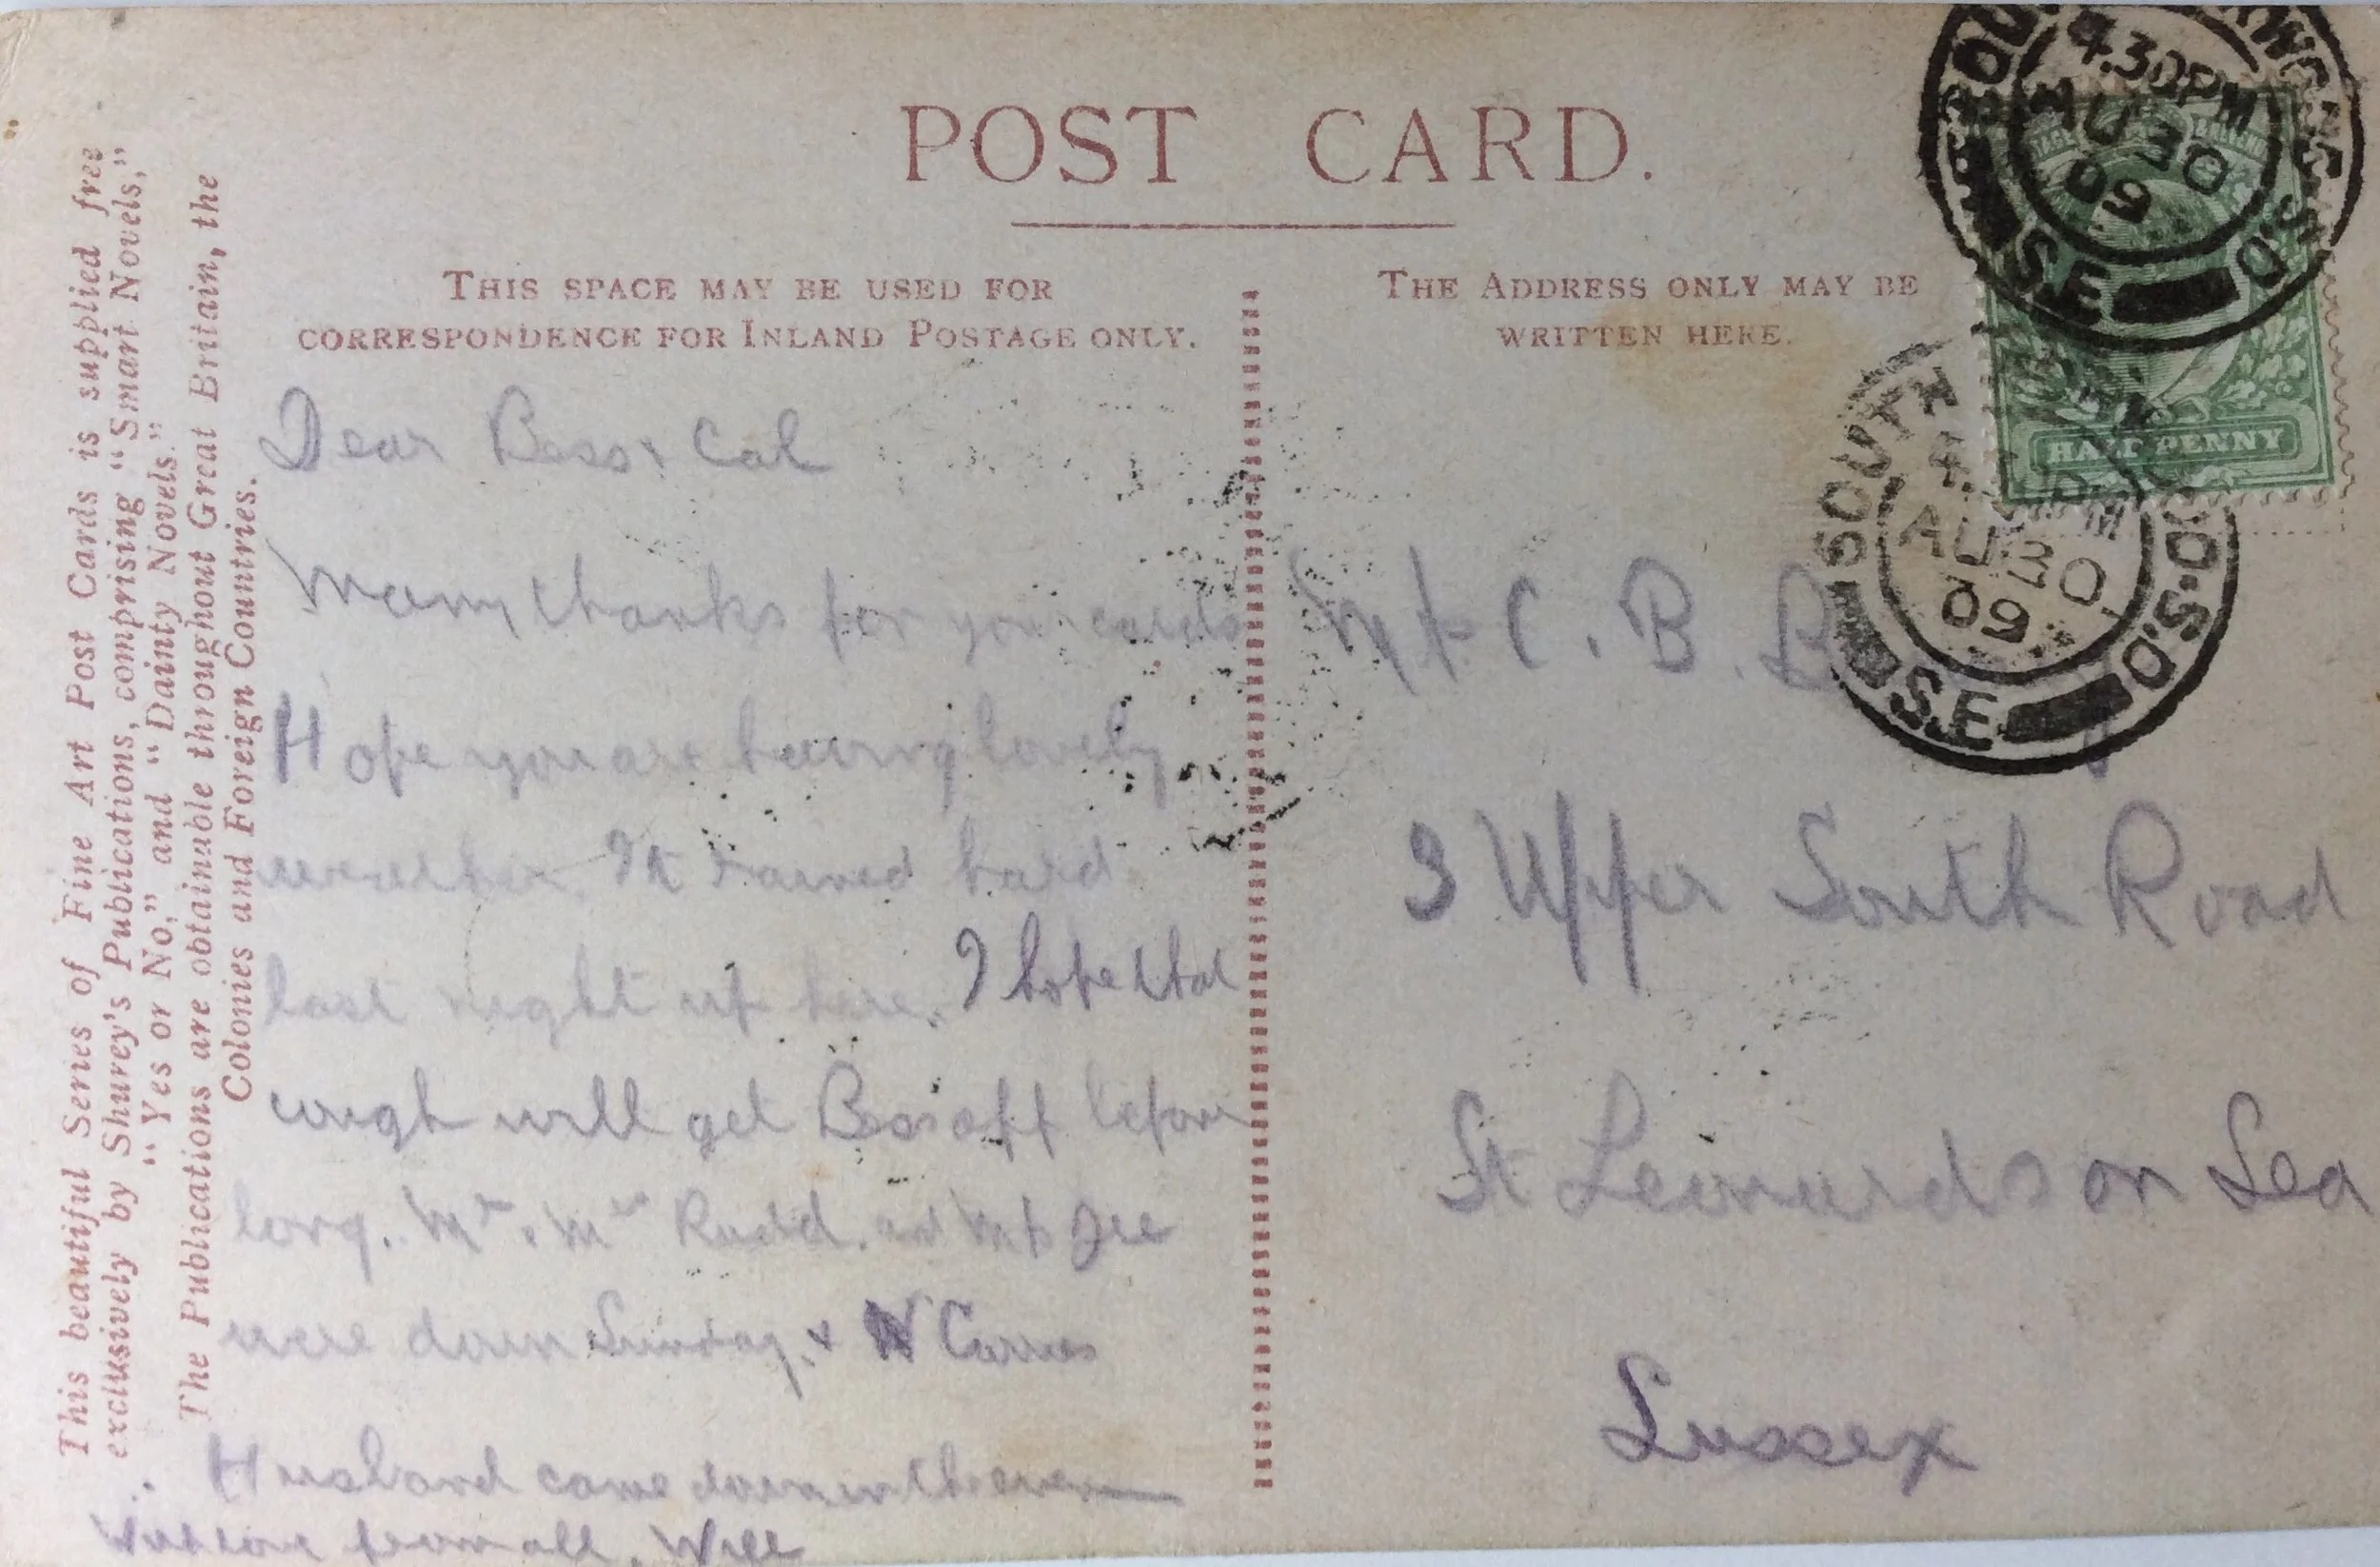 POST CARD.
THIS SPACE MAY BE USED FOR
CORRESPONDENCE FOR INLAND POSTAGE ONLY.
THE ADDRESS ONLY MAY BE
WRITTEN HERE.
This beautiful Series of Fine Art Post Cards is supplied free
exclusively by Shurey's Publications, comprising "Smart Novels,"
"Yes or No," and "Dainty Novels."
The Publications are obtainable throughout Great Britain, the
Colonies and Foreign Countries.
Dear Bess & Cal
Many thanks for your cards
Hope you are having lovely
weather. It rained hard
last night up here. I hope that
cough will get Bess off before
long. Mr & Mrs Rudd. and
were down Sunday, &
Husband came down in the even
love from all. Will
C. B. B
3 Upper South Road
St Leonards on Sea
Sussex
4.30PM
AU 30
09
S.E
S.O.
HALF PENNY
SOUTH
AU 30
09
S.E
S.O.